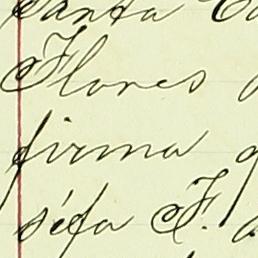 Santa
Flores
firma
séfa F.